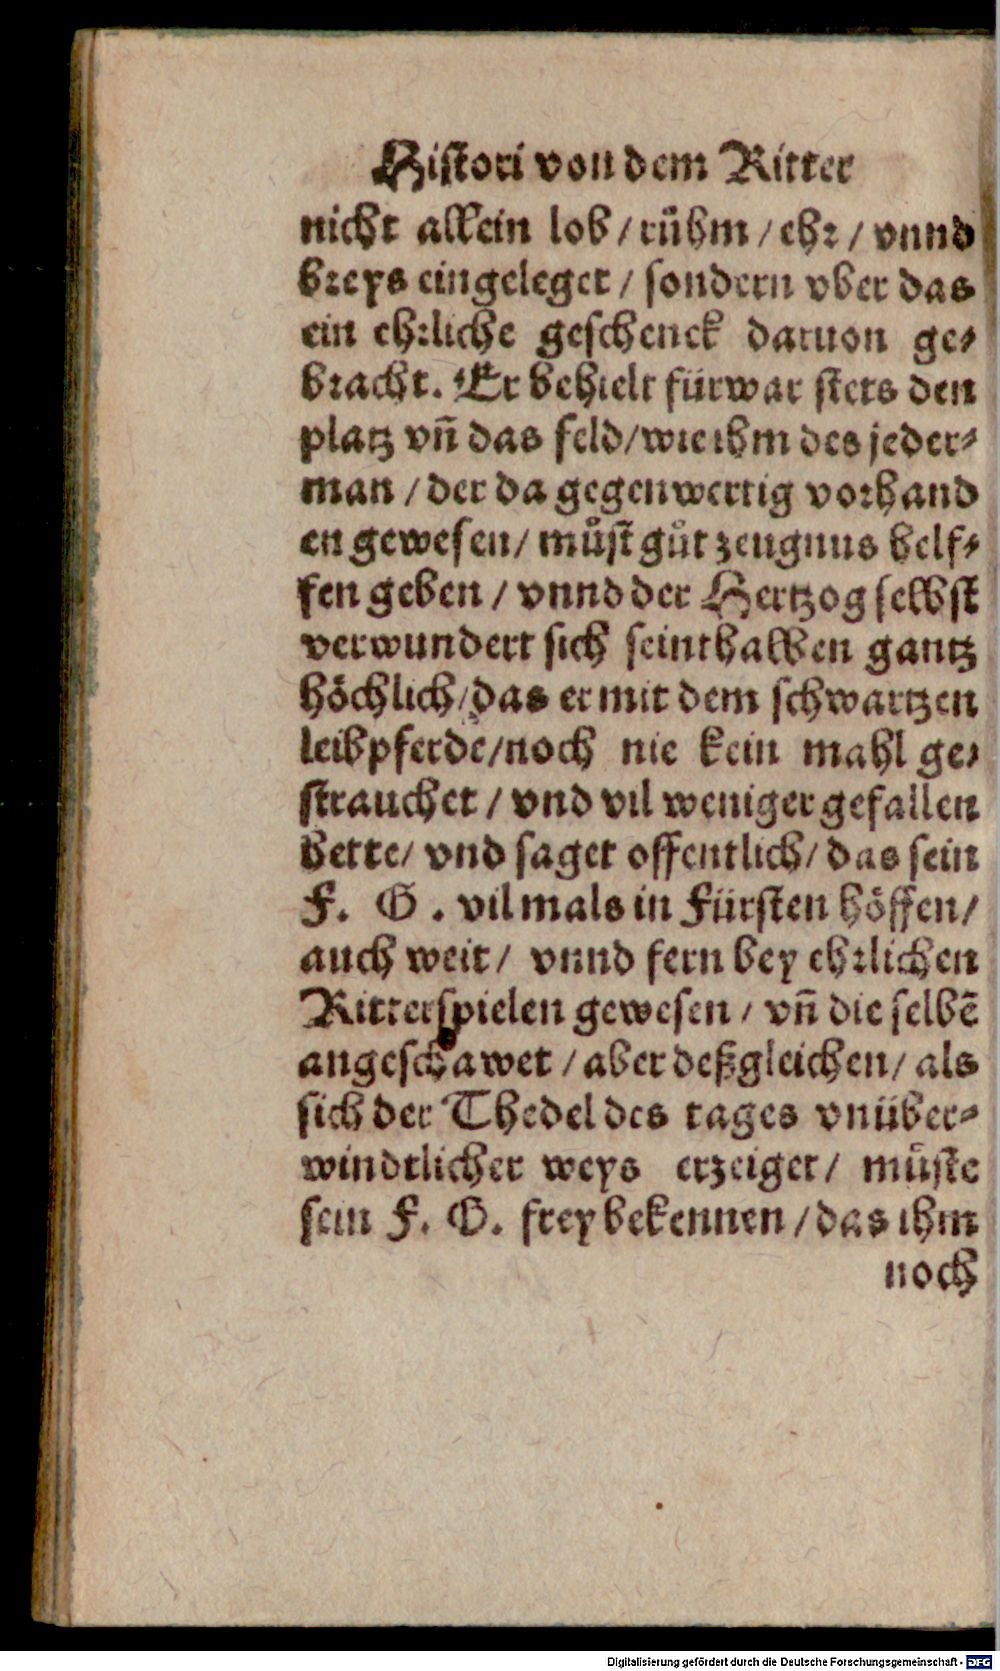 Histori von dem Ritter
nicht allein lob / růhm / ehr / vnnd
breys eingeleget / sondern vber das
ein ehrliche geschenck daruon ge-
bracht. Er behielt fürwar stets den
platz vn̄ das feld/wie ihm des jeder-
man / der da gegenwertig vorhand
en gewesen/ můst gůt zeugnus helf-
fen geben / vnnd der Hertzog selbst
verwundert sich seinthalben gantz
höchlich/das er mit dem schwartzen
leibpferde/noch nie kein mahl ge-
strauchet / vnd vil weniger gefallen
hette/ vnd saget offentlich/ das sein
F. G. vilmals in Fürsten höffen/
auch weit/ vnnd fern bey ehrlichen
Ritterspielen gewesen / vn̄ die selbē
angeschawet / aber deßgleichen/ als
sich der Thedel des tages vnüber-
windtlicher weys erzeiget/ můste
sein F. G. frey bekennen / das ihm
noch
Digitalisierung gefördert durch die Deutsche Forschungsgemeinschaft - DFG